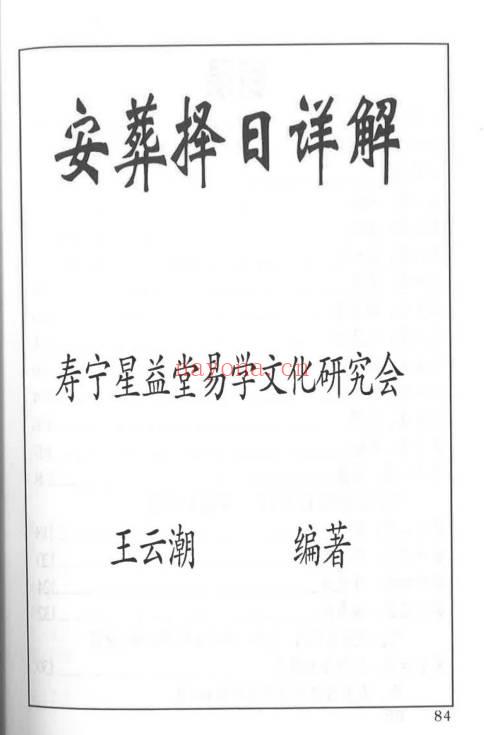 安葬择日详解
寿宁星益堂易学文化研究会
nayona.cn
王云潮 编著
84